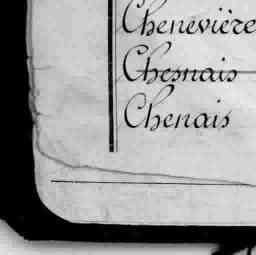 Chenevière
Chesnais
Chenais